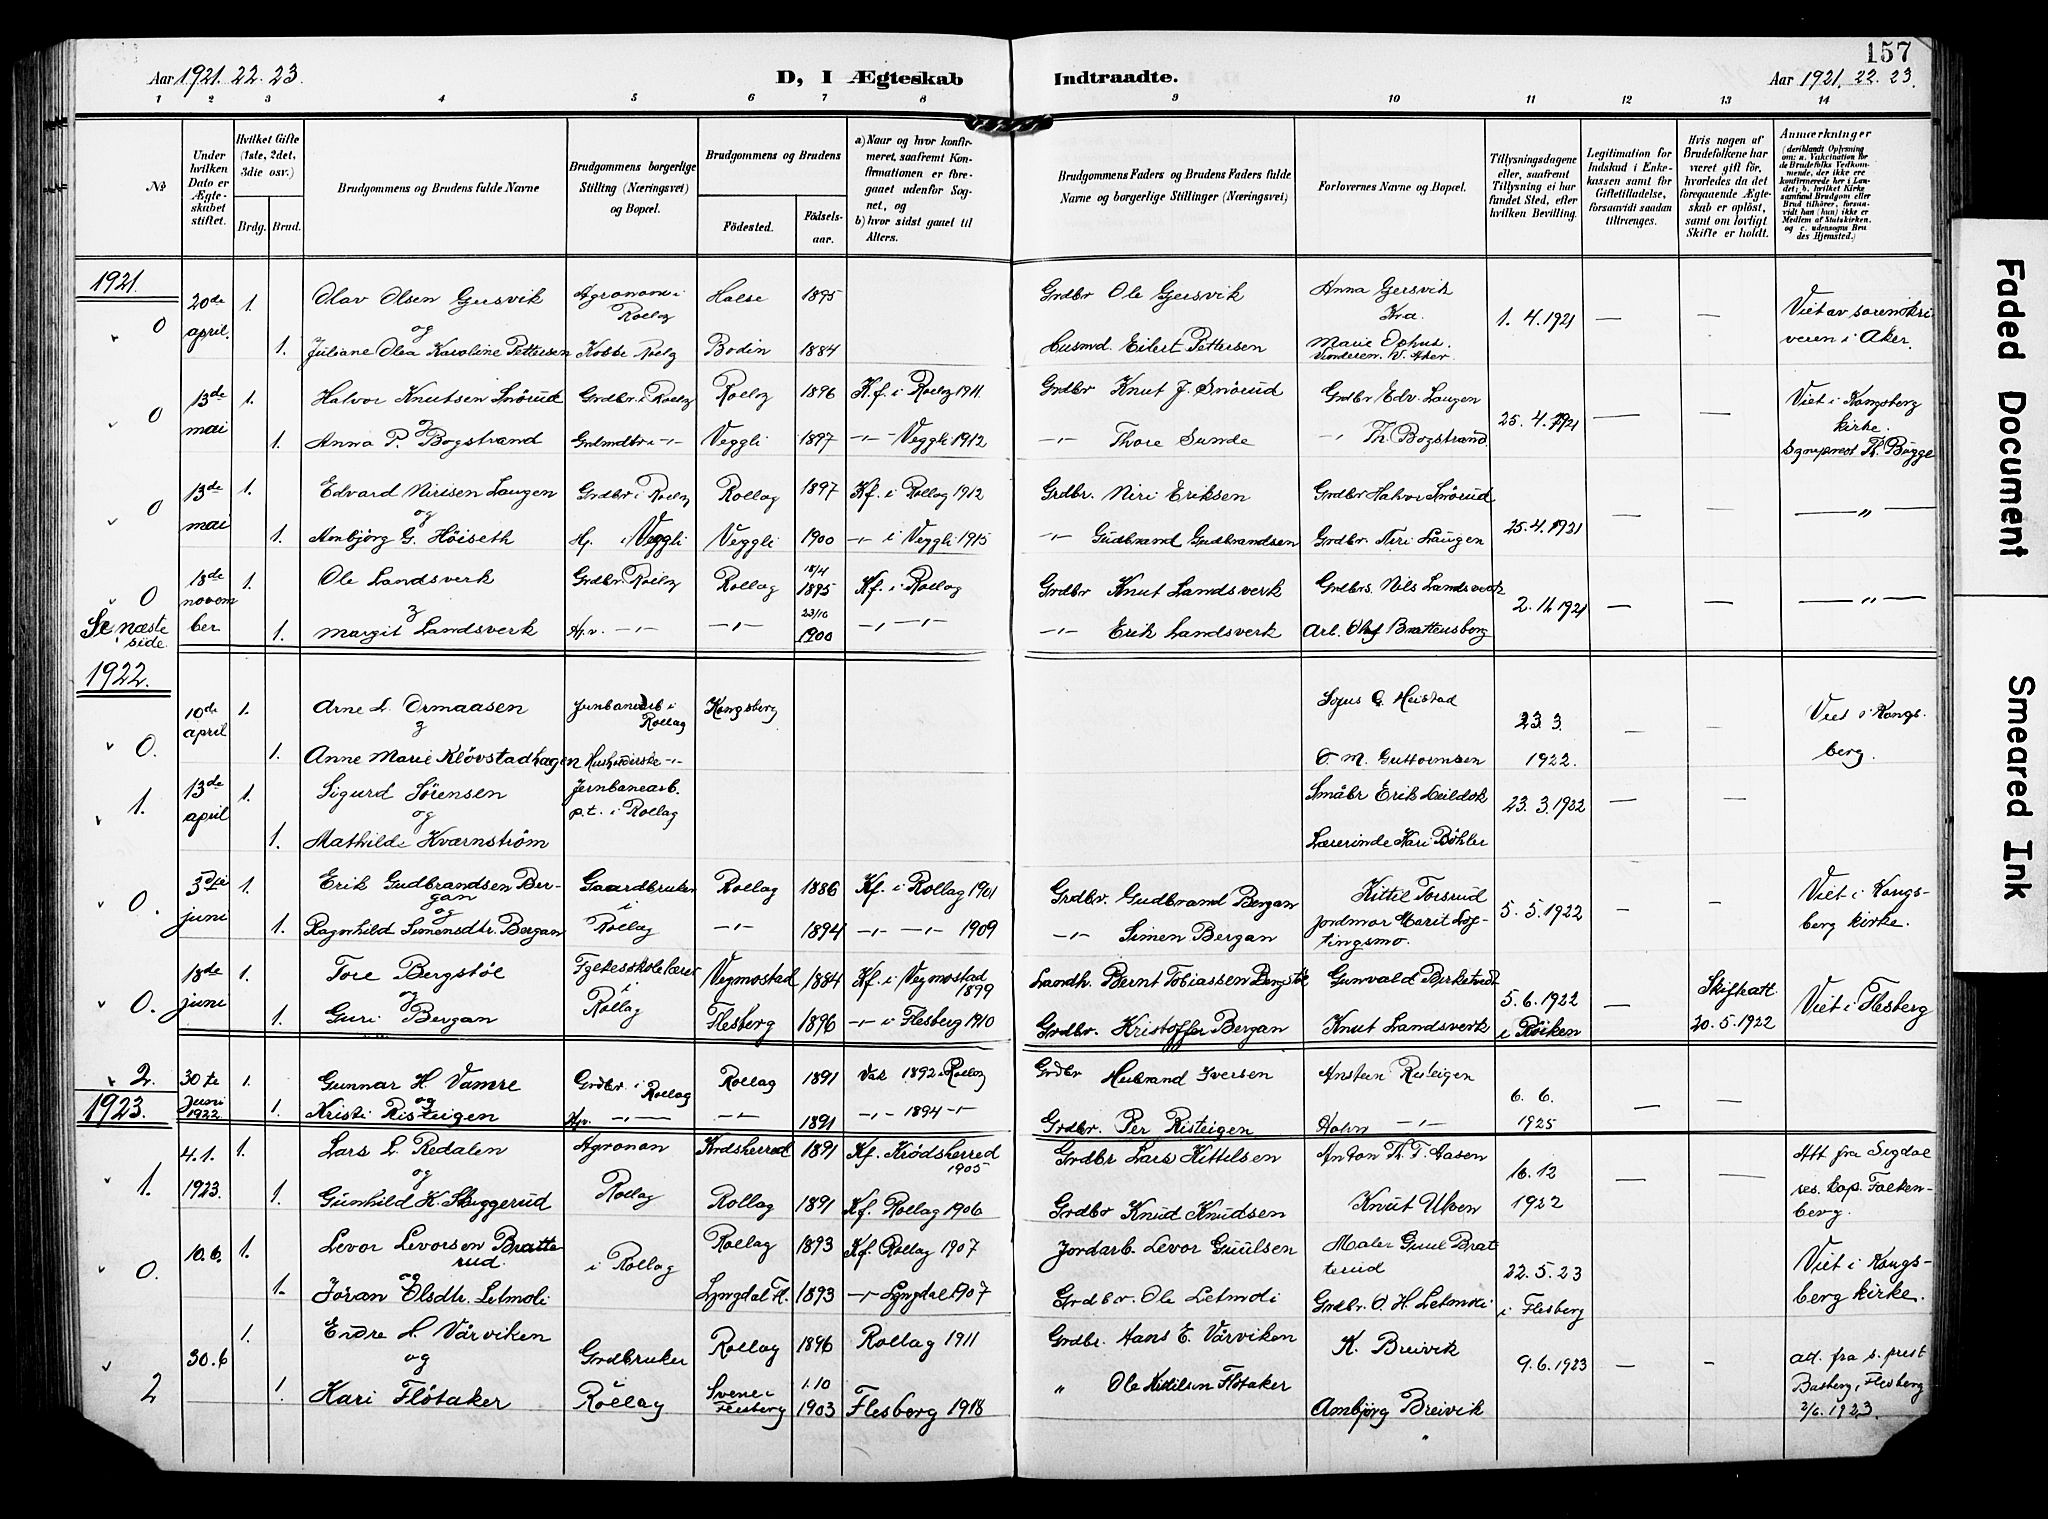 157
Aar 1921. 22. 23.
D, I Ægteskab Indtraadte.
Aar 1921. 22. 23.
1 2 3 4 5 6 7 8 9 10 11 12 13 14
№
Under hvilken Dato er Ægteskabet stiftet.
Hvilket Gifte (1ste, 2det, 3die osv.)
Brdg. Brud.
Brudgommens og Brudens fulde Navne
Brudgommens borgerlige Stilling (Næringsvei) og Bopæl.
Brudgommens og Brudens
Födested.
Födselsaar.
a) Naar og hvor konfirmeret, saafremt Konfirmationen er foregaaet udenfor Sognet, og
b) hvor sidst gaaet til Alters.
Brudgommens Faders og Brudens Faders fulde Navne og borgerlige Stillinger (Næringsvei)
Forlovernes Navne og Bopæl.
Tillysningsdagene eller, saafremt Tillysning ei har fundet Sted, efter hvilken Bevilling.
Legitimation for Indskud i Enkekassen samt for Giftetilladelse, forsaavidt saadan tiltrænges.
Hvis nogen af Brudefolkene har været gift för, hvorledes da det foregaaende Ægteskab er oplöst, samt om lovligt Skifte er holdt.
Anmærkninger (deriblandt Oplysning om: a. Vakcination for de Brudefolks Vedkommende, der ikke ere konfirmerede her i Landet; b. hvilket Kirkesamfund Brudgom eller Brud tilhörer, forsaavidt han (hun) ikke er Medlem af Statskirken, og c. udensogns Brudes Hjemsted.)
1921.
0 20de april. 1. Olav Olsen Gjersvik Agronom i Rollag Halse 1895 Grdbr Ole Gjersvik Anna Gjersvik Kra. 1. 4. 1921 — — Viet av sorenskriveren i Aker.
og
1. Juliane Olea Karoline Pettersen Kokke Rollag Bodin 1884 Husmd. Eilert Pettersen Marie Ophus. Vinderen V. Aker
0 13de mai 1. Halvor Knutsen Snörud Grdbr. i Rollag Rollag 1896 K.f. i Rollag 1911 Grdbr Knut J. Snörud Grdbr Edv. Laugen 25. 4. 1921 — — Viet i Kongsberg kirke.
og
1. Anna P. Bogstrand -"- Veggli 1897 -"- Veggli 1912 -"- Thore Sunde -"- Th. Bogstrand. Sgnprest Th. Bugge
0 13de mai 1. Edvard Nirisen Laugen Grdbr i Rollag Rollag 1897 Kf. i Rollag 1912 Grdbr. Niri Eriksen Grdbr Halvor Snörud 25. 4. 1921 — — — " —
og
1. Anbjörg G. Höiseth Hj. i Veggli Veggli 1900 -"- i Veggli 1915 -"- Gudbrand Gudbrandsen Grdbr. Niri Laugen
0 18de november 1. Ole Landsverk Grdbr. Rollag Rollag 18/4 1895 Kf. i Rollag Grdbr Knut Landsverk Grdbrs. Nils Landsverk 2. 11. 1921 — — — " —
og
1. Margit Landsverk Hjv. -"- -"- 23/10 1900 -"- -"- -"- Erik Landsverk Arb. Olaf Brattensborg
Se næste side.
1922.
0. 10de april 1. Arne L. Ormaasen Jernbanearb i Rollag Kongsberg Heistad 23. 3. 1922. — — Viet i Kongsberg.
og
1. Anne Marie Klövstadhagen Husholderske -"- O. M. Guttormsen
1. 13de april 1. Sigurd Sörensen Jernbanearb. p.t. i Rollag Småbr Erik Meildok 23. 3. 1922 — —
og
1. Mathilde Kværnström Lærerinde Kari Böhler
0. 3die juni 1. Erik Gudbrandsen Bergan Gaardbruker i Rollag Rollag 1886 Kf. i Rollag 1901 Grdbr. Gudbrand Bergan Kittil Torsrud 5. 5. 1922 — — Viet i Kongsberg kirke.
og
1. Ragnhild Simensdtr. Bergan -"- 1894 -"- -"- 1909 -"- Simen Bergan Jordmor Marit Loftingsmo.
0. 18de juni 1. Tore Bergstöl i Rollag Vegmostad 1884 Kf. i Vegmostad 1899 Landh. Bernt Tobiassen Bergstöl Gunvald Birketvedt 5. 6. 1922 i Röiken — Skifteatt. 20. 5. 1922 Viet i Flesberg
og
1. Guri Bergan Flesberg 1896 -"- i Flesberg 1910 Grdbr. Kristoffer Bergan Knut Landsverk
2. 30te Juni 1922 1. Gunnar H. Vamre Grdbr. i Rollag Rollag 1891 Vak 1892 i Rollag Grdbr Heibrand Iversen Ansten Risteigen 6. 6. 1925 — —
og
1. Kristi Risteigen Hjv. -"- -"- 1891 -"- 1894 -"- Grdbr. Per Risteigen -"-
1923.
1. 4. 1. 1923. 1. Lars L. Redalen Agronom Rollag Krödsherred 1891 Kf. Krödsherred 1905 Grdbr Lars Kittilsen Anton Th. T. Aasen 16. 12 1922 — — Att fra Sigdal res. kap. Falkenberg.
og
1. Gunhild K. Skuggerud Rollag 1891 Kf. Rollag 1906 Grdbr Knud Knudsen Knut Ulven
0. 10. 6. 1. Levor Levorsen Bratterud. i Rollag Rollag 1893 Kf. Rollag 1907 Jordarb. Levor Guulsen Maler Guul Bratterud 22. 5. 23 i Flesberg Viet i Kongsberg kirke.
og
1. Jöran Olsdtr. Letmoli Lyngdal Fl. 1893 -"- Lyngdal 1907 Grdbr. Ole Letmoli Grdbr. O. H. Letmoli
2 30. 6 1. Endre H. Vårviken Grdbruker i Rollag Rollag 1896 Rollag 1911 Grdbr. Hans E. Vårviken K. Breivik 9. 6. 1923 — — Att. fra s. prest Basberg i Flesberg 2/6. 1923.
og
1. Kari Flötaker Svene i Flesberg 1.10 1903 Flesberg 1918 " Ole Kittilsen Flötaker Ambjörg Breivik "
Faded Document
Smeared Ink